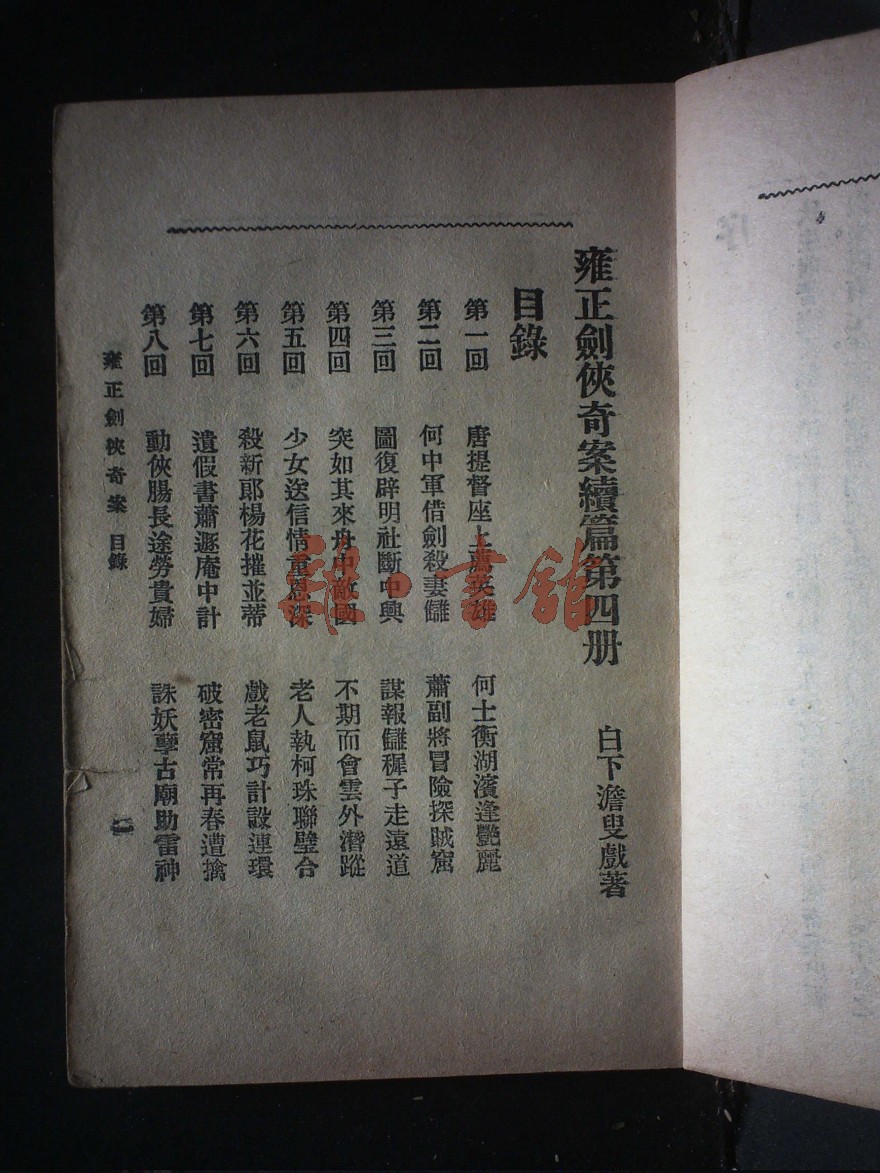 雍正劍俠奇案續篇第四册　白下澹叟戲著
目錄
第一回　唐提督座上薦英雄　何士衡湖濱逢艷麗
第二回　何中軍借劍殺妻讎　蕭副將冒險探賊窟
第三回　圖復辟明社斷中興　謀報讎穉子走遠道
第四回　突如其來舟中敵國　不期而會雲外潛蹤
第五回　少女送信情重恩深　老人執柯珠聯璧合
第六回　殺新郎楊花摧並蒂　戲老鼠巧計設連環
第七回　遺假書蕭遯庵中計　破密窟常再春遭擒
第八回　動俠腸長途勞貴婦　誅妖孽古廟助雷神
雍正劍俠奇案 目錄
雜·書館
序